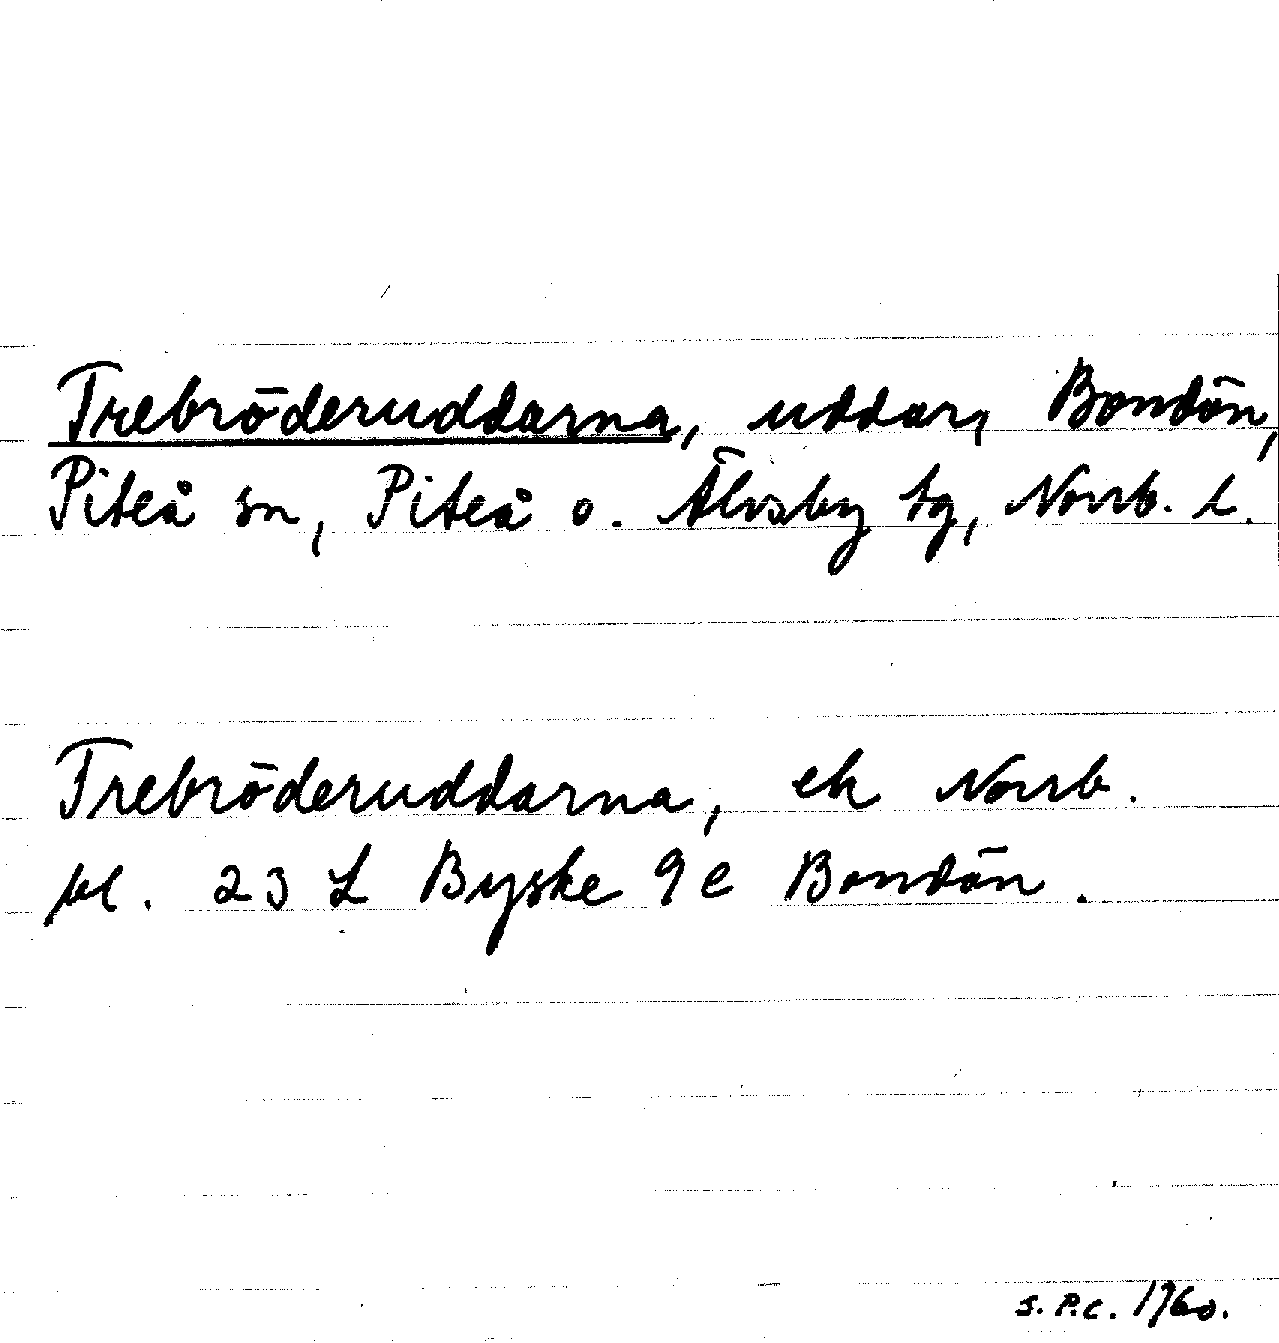 Trebröderuddarna, uddar, Bondön,
Piteå sn, Piteå o. Älvsby tg, Norrb. l.
Trebröderuddarna, ek Norrb.
bl. 23 L Byske 9 e Bondön.
S.P.C. 1960.